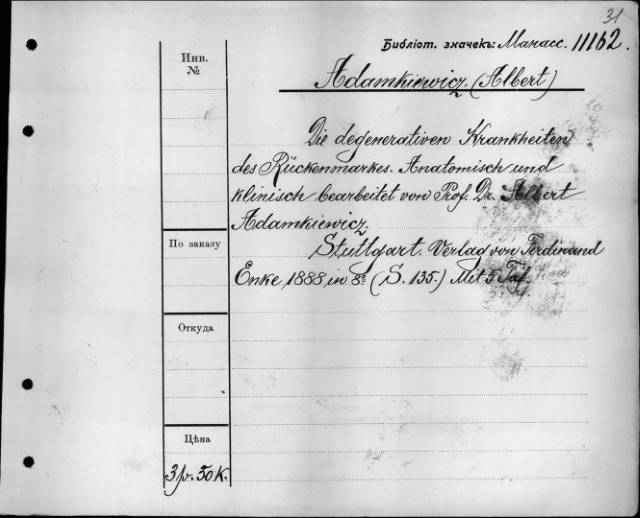 31
Библіот. значекъ: Манасс. 11162.
Инв.
№
Adamkiewicz (Albert)
Die degenerativen Krankheiten
des Rückenmarkes. Anatomisch und
klinisch bearbeitet von Prof. Dr. Albert
Adamkiewicz.
По заказу
Stuttgart. Verlag von Ferdinand
Enke 1888, in 8º (S. 135.) Mit 5 Taf.
Откуда
Цѣна
3 р. 50 к.